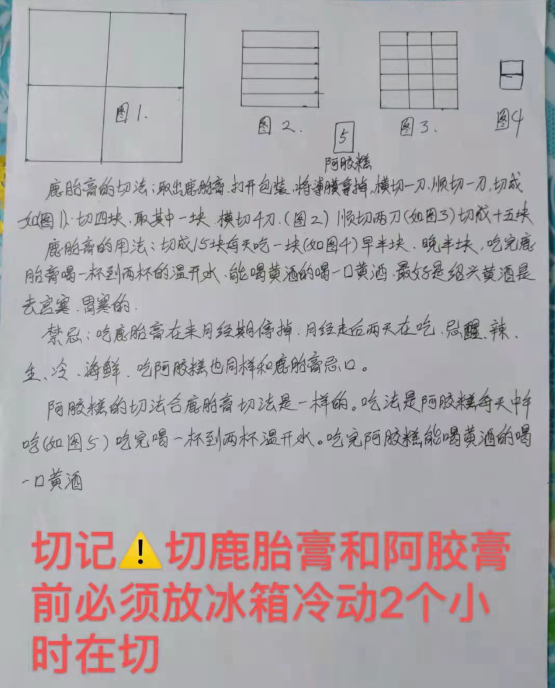 图1.
图2.
5
阿胶糕
图3.
图4
鹿胎膏的切法:取出鹿胎膏.打开包装.将薄膜拿掉.横切一刀.顺切一刀.切成
如图1).切四块.取其中一块.横切4刀.(图2)顺切两刀(如图3)切成十五块
鹿胎膏的用法:切成15块每天吃一块(如图4)早半块.晚半块.吃完鹿
胎膏喝一杯到两杯的温开水.能喝黄酒的喝一口黄酒.最好是绍兴黄酒是
去宫寒.胃寒的.
禁忌:吃鹿胎膏在来月经期停掉.月经走后两天在吃.忌醒、辣、
生、冷、海鲜.吃阿胶糕也同样和鹿胎膏忌口。
阿胶糕的切法合鹿胎膏切法是一样的。吃法是阿胶糕每天中午
吃(如图5)吃完喝一杯到两杯温开水。吃完阿胶糕能喝黄酒的喝
一口黄酒
切记⚠️切鹿胎膏和阿胶膏
前必须放冰箱冷动2个小
时在切